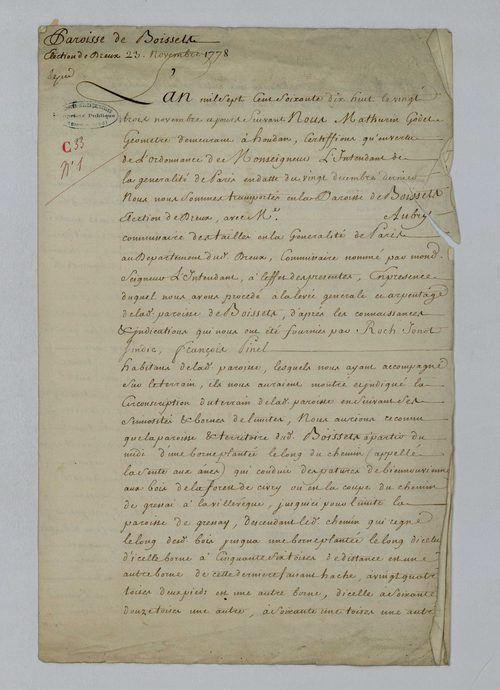 Paroisse de Boissets
Election de Dreux 23. Novembre 1778
Propriété Publique
C 33
N° 1
L'An mil sept cent soixante dix huit le vingt
trois novembre et jours suivant Nous Mathurin Godet
Geometre demeurant a houdan, Certiffions qu'en vertu
de L'ordonnance de Monseigneur L'Intendant de
la generalité de Paris en datte du vingt decembre dernier
Nous nous sommes transportés en la Paroisse de Boissets
Election de Dreux, avec Mr. Aubry
commissaire des tailles en la Generalité de Paris
au Departement dud. Dreux, Commissaire nommé par mond.
Seigneur L'Intendant, à l'effet des presentes, En presence
duquel nous avons procedé a la levée generale et arpentage
de lad. paroisse de Boissets, d'après les connaissances
& indications qui nous ont été fournies par Roch Jonot
sindic, François Pinel
habitans de lad. paroisse, lesquels nous ayant accompagné
sur le terrain, ils nous auraient montré et indiqué la
Circonscription du terrain de lad. paroisse en suivant ses
sinuosités & bornes de limites, Nous aurions reconnu
que la paroisse & territoire dud. Boissets à partir du
midi d'une borne plantée le long du chemin (appellé
la sente aux anes) qui conduit des patures de
aux bois de la forest de civry ou en la coupe du chemin
de gressai à la villeveque, jusqu'ici pour limite la
paroisse de gressay, descendant led. chemin qui regne
le long desd. bois jusqu'a une borne plantée le long d'icelui
d'icelle borne à Cinquante six toises de distance en une
autre borne de cette derniere faisant hache, a vingt quatre
toises deux pieds en une autre borne, d'icelle a soixante
douze toises une autre, à soixante une toises une autre